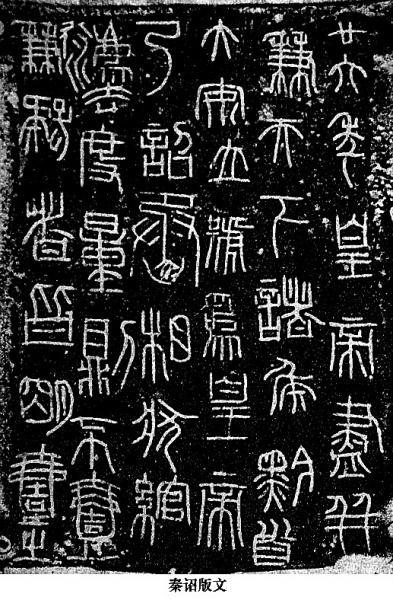 廿六年皇帝盡并
兼天下諸侯黔首
大安立號為皇帝
乃詔丞相狀綰
灋度量則不壹
歉疑者皆明壹之
秦诏版文